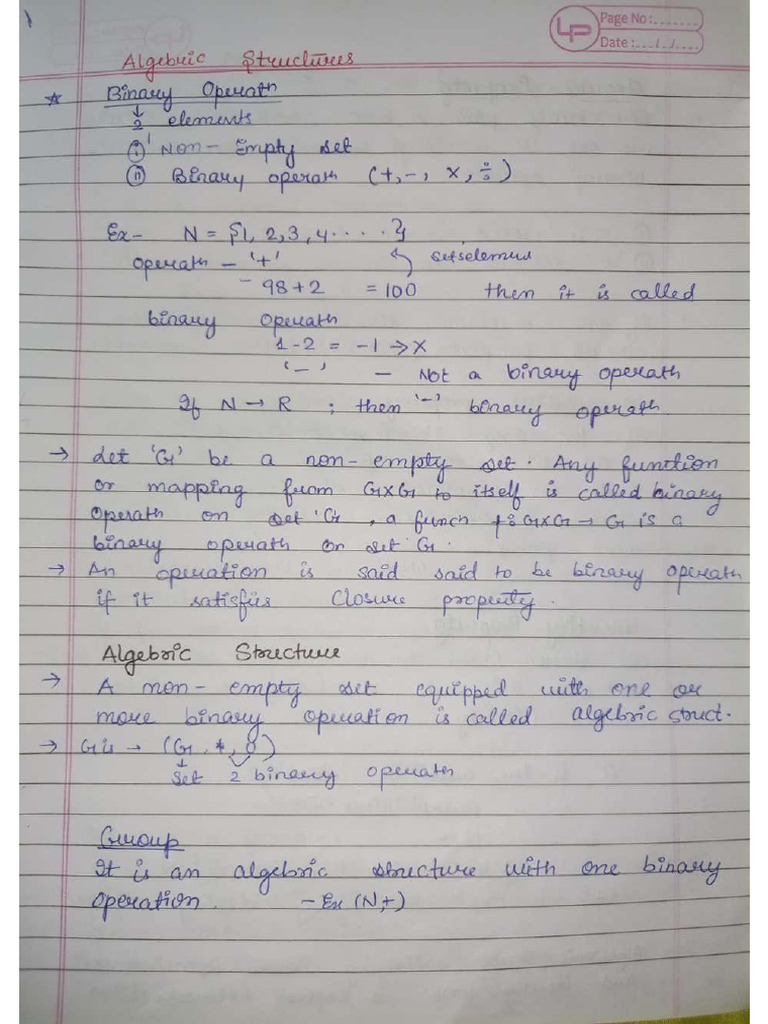 1
LP Page No:.......
Date:.../../....
Algebric Structures
☆ Binary Operatn
↓
2 elements
(i) Non-Empty set
(ii) Binary operatn (+, -, ×, ÷)
Ex- N = {1, 2, 3, 4.....}
operatn - '+' set's
- 98+2 = 100 then it is called
binary operatn
1-2 = -1 → ×
'-' - Not a binary operatn
If N → R ; then '-' binary operatn
→ Let 'G' be a non-empty set. Any function
or mapping from G×G to itself is called binary
operatn on set 'G', a funcn f: G×G → G is a
binary operatn or set G.
→ An operation is said said to be binary operatn
if it satisfies Closure property.
Algebric Structure
→ A non-empty set equipped with one or
more binary operation is called algebric struct.
→ G is → (G, *, o)
↓
Set 2 binary operatn
Group
It is an algebric structure with one binary
operation. - Ex (N,+)